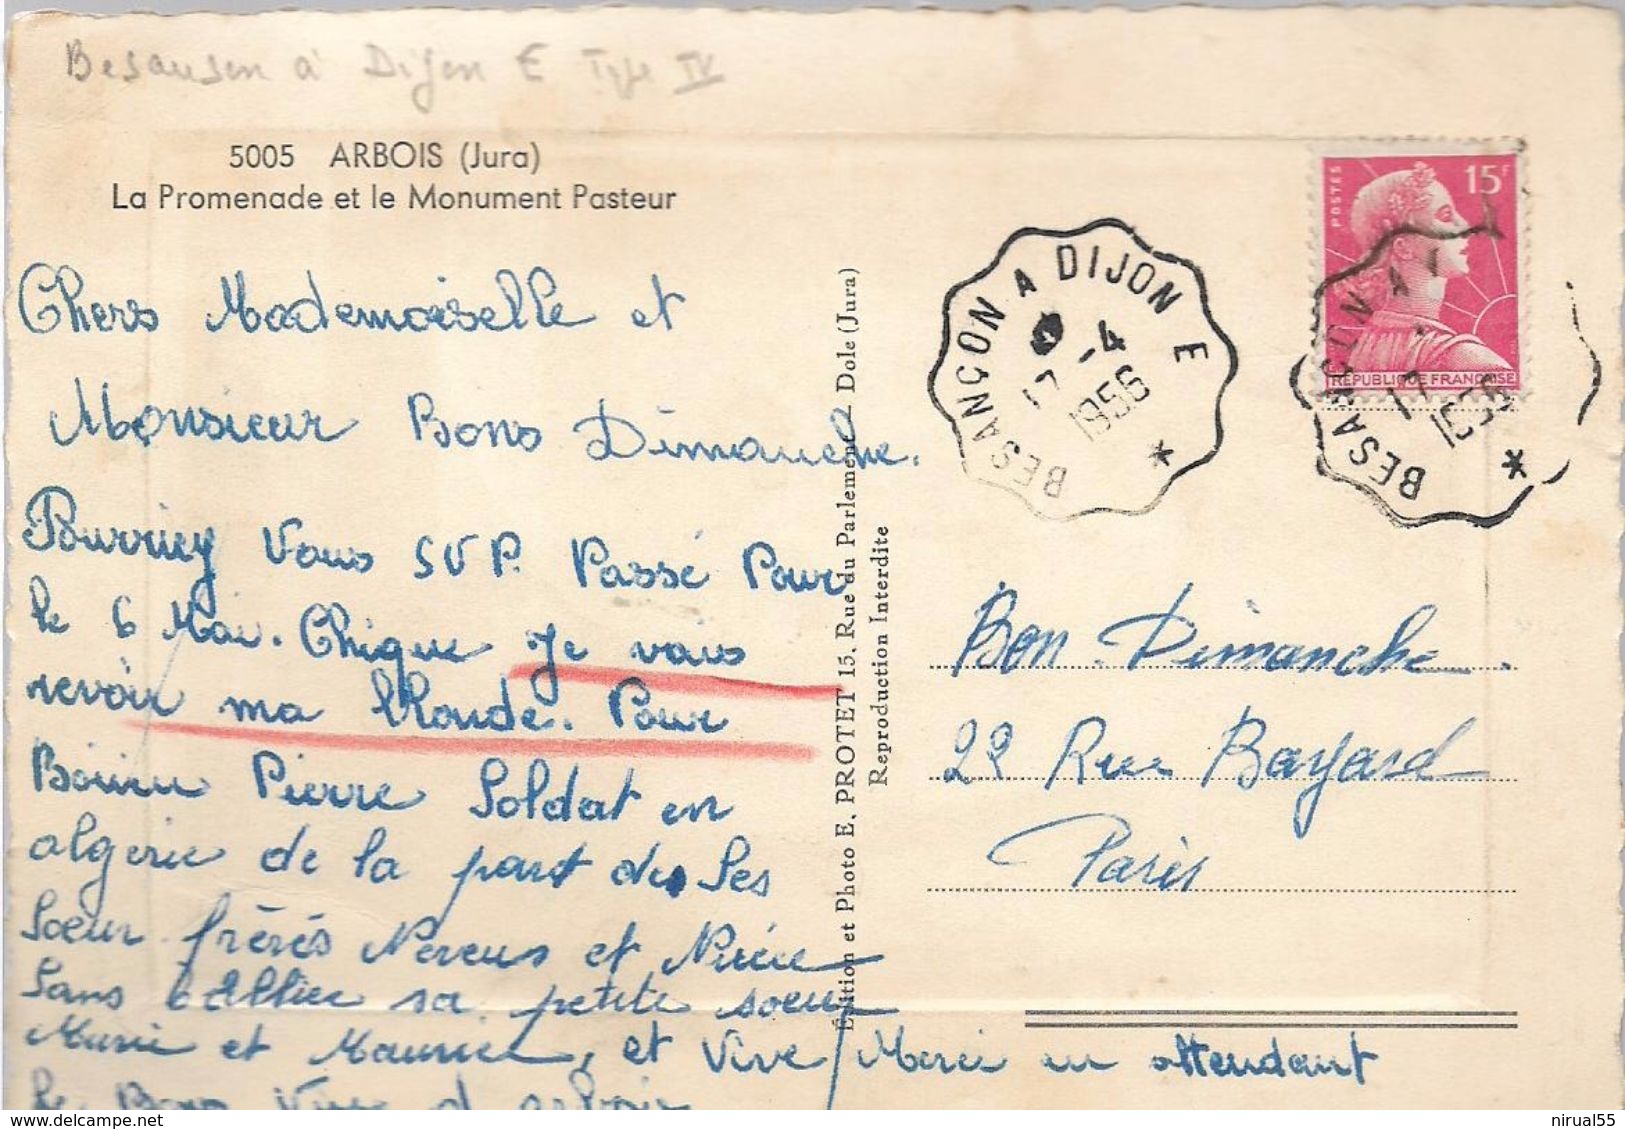 Besanson à Dijon E Type IV
5005 ARBOIS (Jura)
La Promenade et le Monument Pasteur
Chers Mademoiselle et
Monsieur Bons Dimanche.
Pourriey Vous SVP. Passé Pour
le 6 Mai. Chique Je vais
revoir ma blonde. Pour
Pierre Soldat en
algerie de la part des Ses
Soeur frérés Neveus et Niéce
Sans sa petite soeur
et Maurice, et Vive Merci en attendant
le Bons Vin d arbois
Édition et Photo E. PROTET 15, Rue du Parlement Dole (Jura)
Reproduction Interdite
BESANÇON A DIJON E
17 -4
1956
POSTES
15F
RÉPUBLIQUE FRANÇAISE
BESANÇON A
17
1956
Bon. Dimanche.
22 Rue Bayard
Paris
nirual55